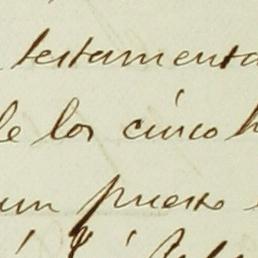 testamenta
de los cinco h
un puesto